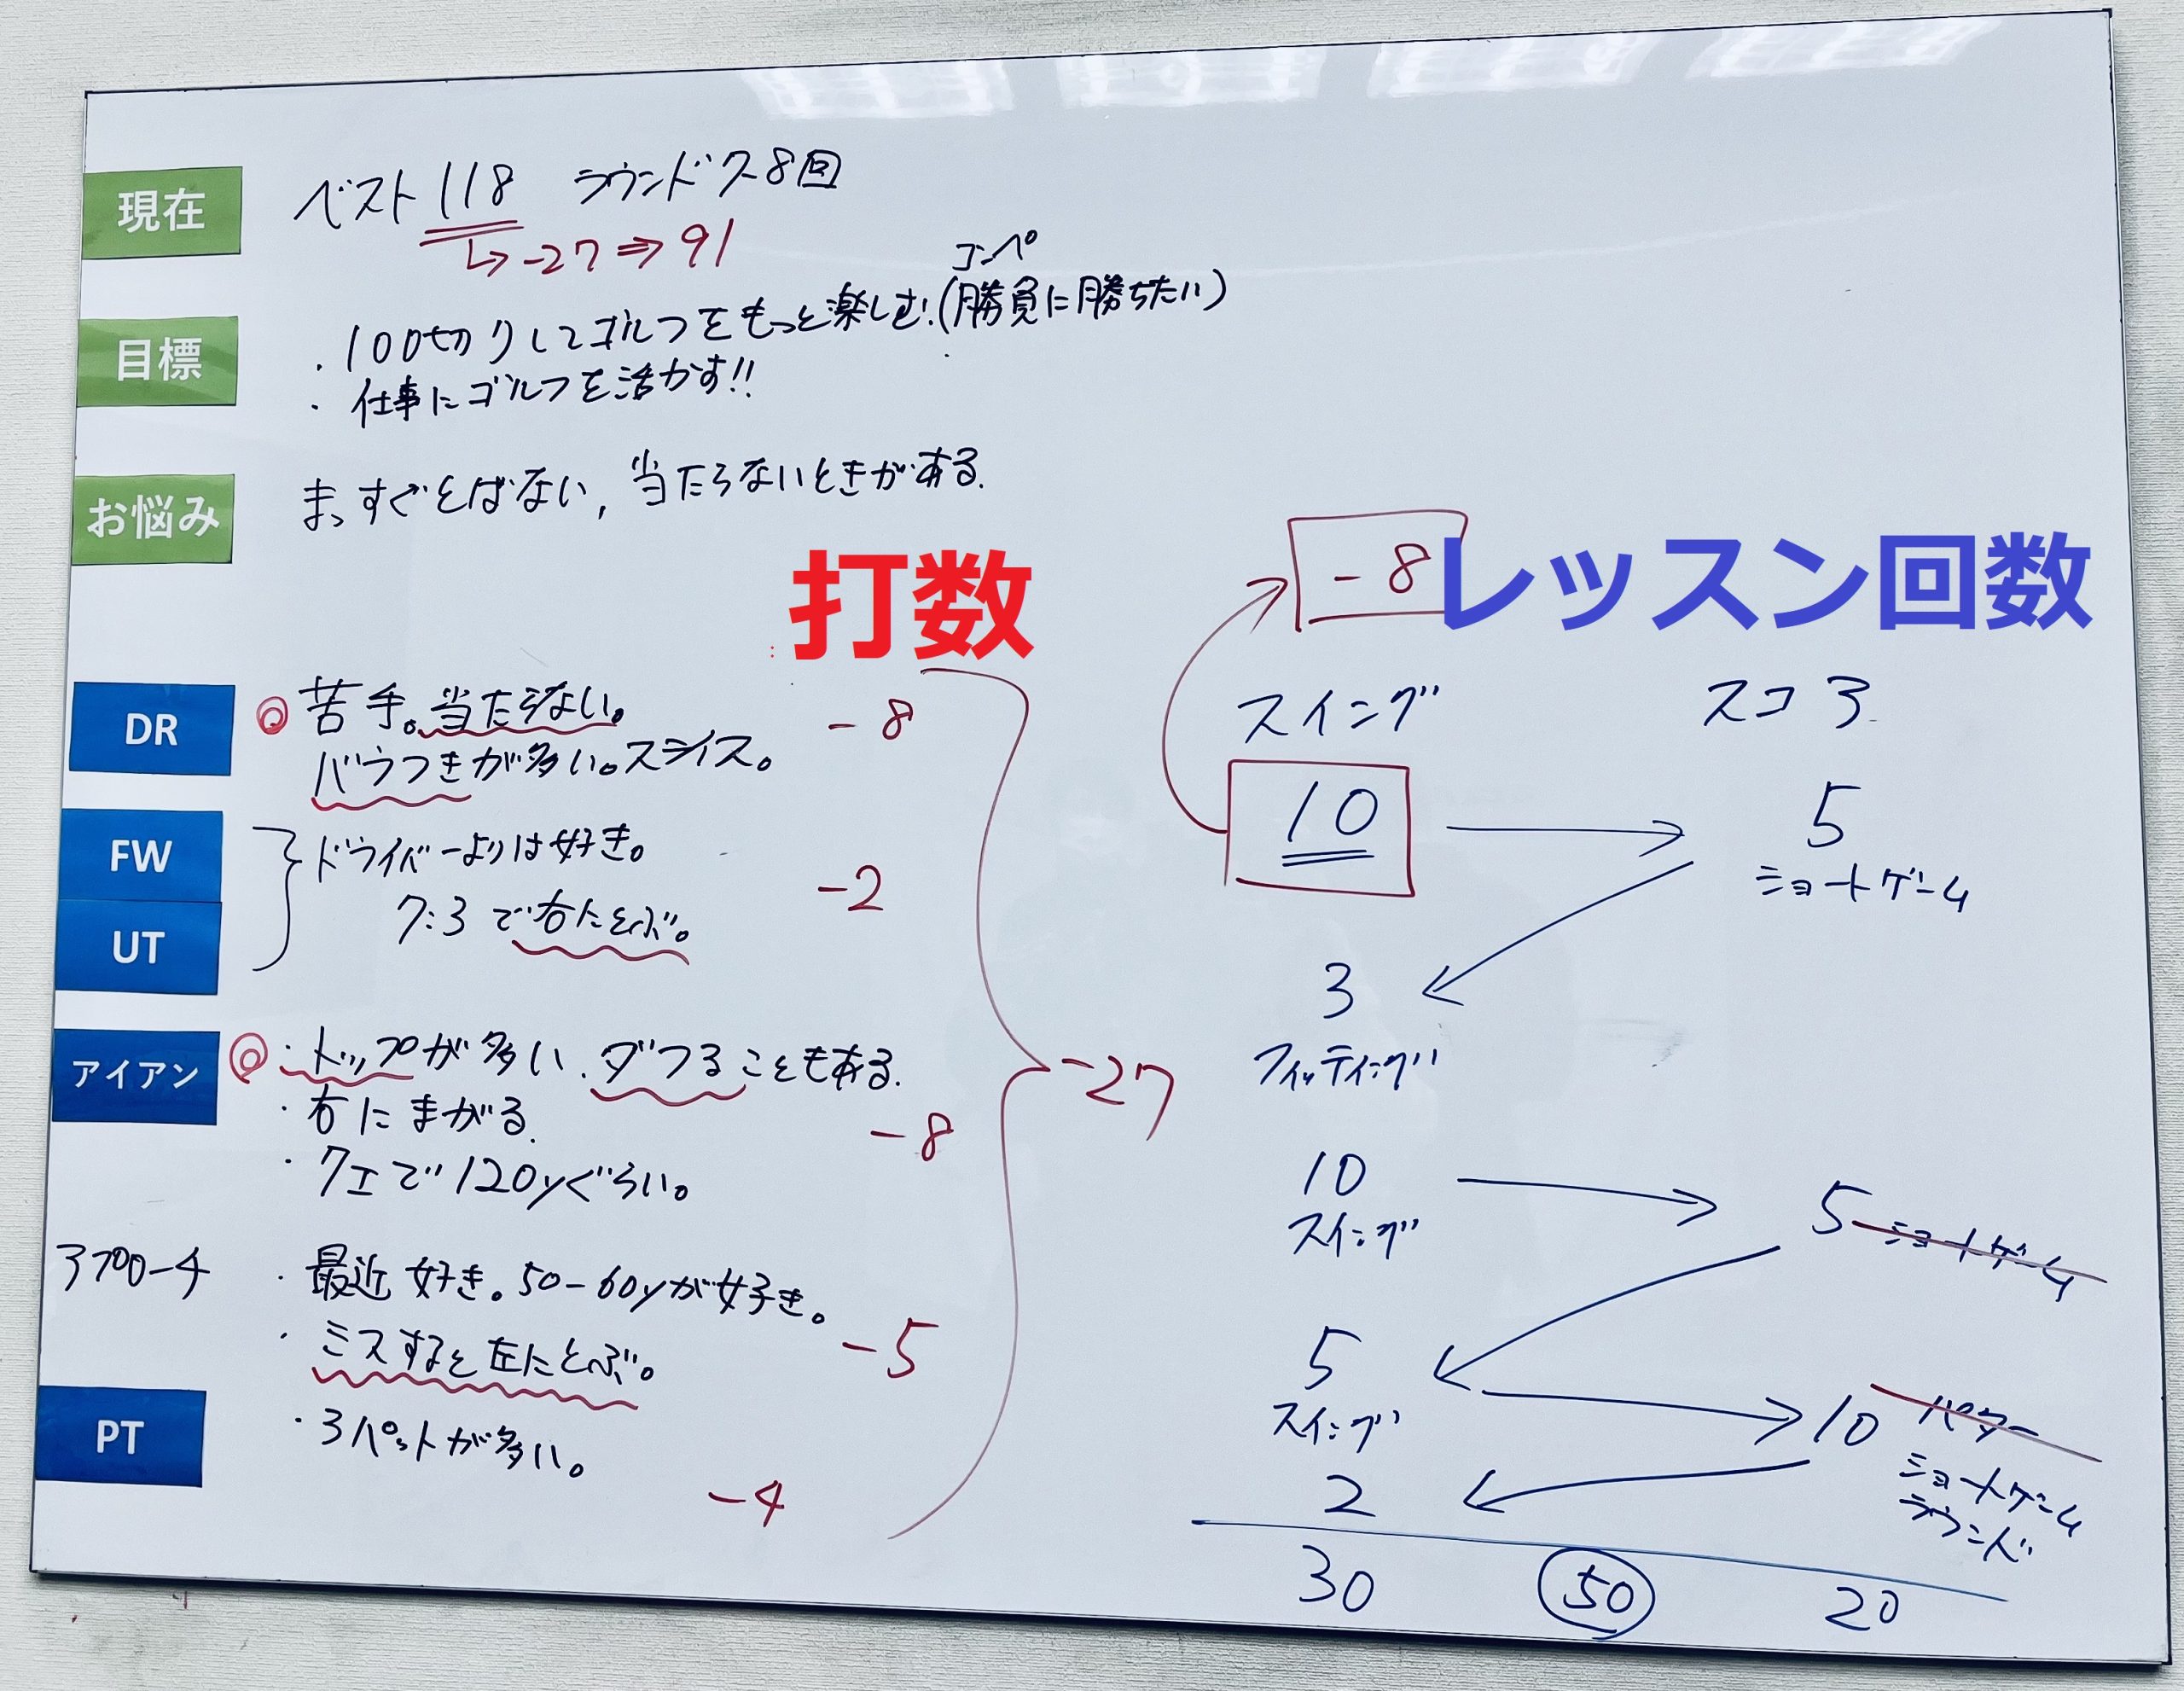 現在
ベスト118 ラウンド7〜8回
↳ -27 ⇒ 91
目標
コンペ
・100切りしてゴルフをもっと楽しむ!(勝負に勝ちたい)
・仕事にゴルフを活かす!!
お悩み
まっすぐとばない, 当たらないときがある.
打数
-8
レッスン回数
DR
◎苦手。当たらない。
バラつきが多い。スライス。
-8
FW
UT
ドライバーよりは好き。
7:3で右にとぶ。
-2
アイアン
◎・トップが多い、ダフることもある.
・右にまがる.
・7Iで120yぐらい。
-8
アプローチ
・最近好き。50-60yが好き。
・ミスすると左にとぶ。
-5
PT
・3パットが多い。
-4
-27
スイング
スコア
10
5
ショートゲーム
3
フィッティング
10
スイング
5 ショートゲーム
5
スイング
10 パター
ショートゲーム
ラウンド
2
30
50
20